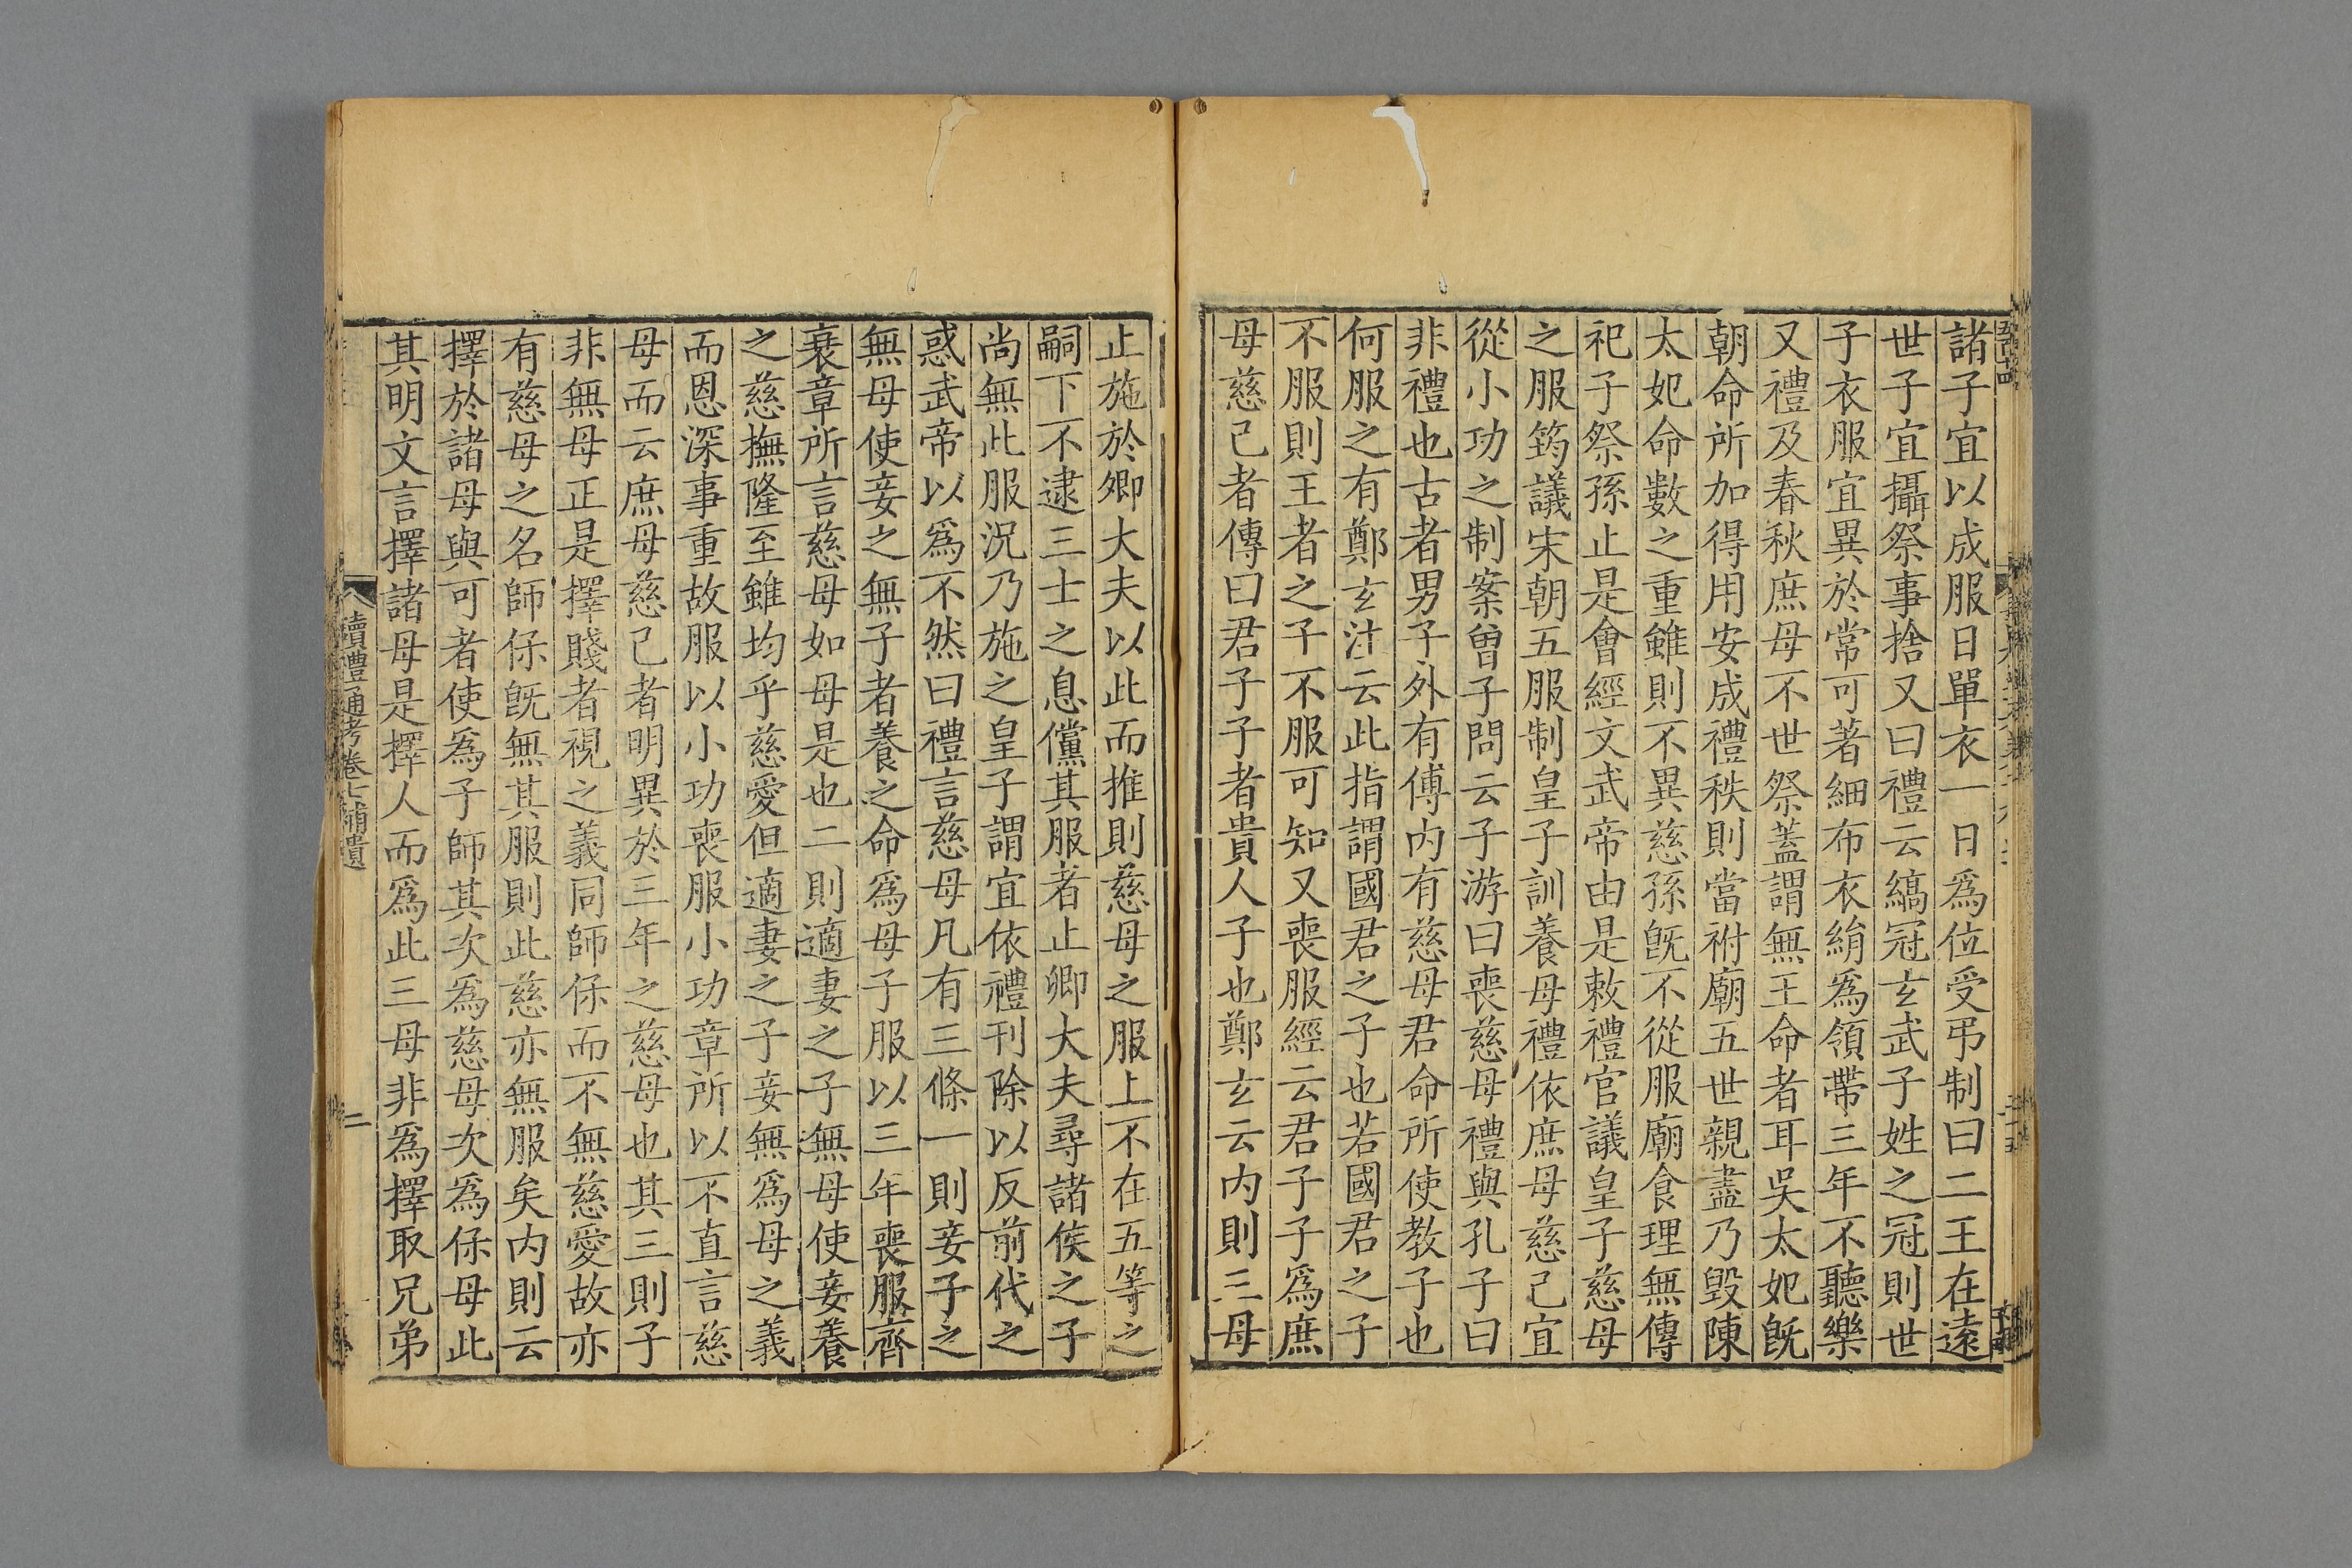 諸子宜以成服日單衣一日爲位受弔制曰二王在遠
世子宜攝祭事捨又曰禮云縞冠玄武子姓之冠則世
子衣服宜異於常可著細布衣絹爲領帶三年不聽樂
又禮及春秋庶母不世祭蓋謂無王命者耳吳太妃旣
朝命所加得用安成禮秩則當祔廟五世親盡乃毁陳
太妃命數之重雖則不異慈孫旣不從服廟食理無傳
祀子祭孫止是會經文武帝由是敕禮官議皇子慈母
之服筠議宋朝五服制皇子訓養母禮依庶母慈己宜
從小功之制案曾子問云子游曰喪慈母禮與孔子曰
非禮也古者男子外有傅内有慈母君命所使教子也
何服之有鄭玄注云此指謂國君之子也若國君之子
不服則王者之子不服可知又喪服經云君子子爲庶
母慈己者傳曰君子子者貴人子也鄭玄云内則三母
止施於卿大夫以此而推則慈母之服上不在五等之
嗣下不逮三士之息儻其服者止卿大夫尋諸侯之子
尚無此服況乃施之皇子謂宜依禮刊除以反前代之
惑武帝以爲不然曰禮言慈母凡有三條一則妾子之
無母使妾之無子者養之命爲母子服以三年喪服齊
衰章所言慈母如母是也二則適妻之子無母使妾養
之慈撫隆至雖均乎慈愛但適妻之子妾無爲母之義
而恩深事重故服以小功喪服小功章所以不直言慈
母而云庶母慈己者明異於三年之慈母也其三則子
非無母正是擇賤者視之義同師保而不無慈愛故亦
有慈母之名師保旣無其服則此慈亦無服矣内則云
擇於諸母與可者使爲子師其次爲慈母次爲保母此
其明文言擇諸母是擇人而爲此三母非爲擇取兄弟
讀禮通考卷七補遺
二